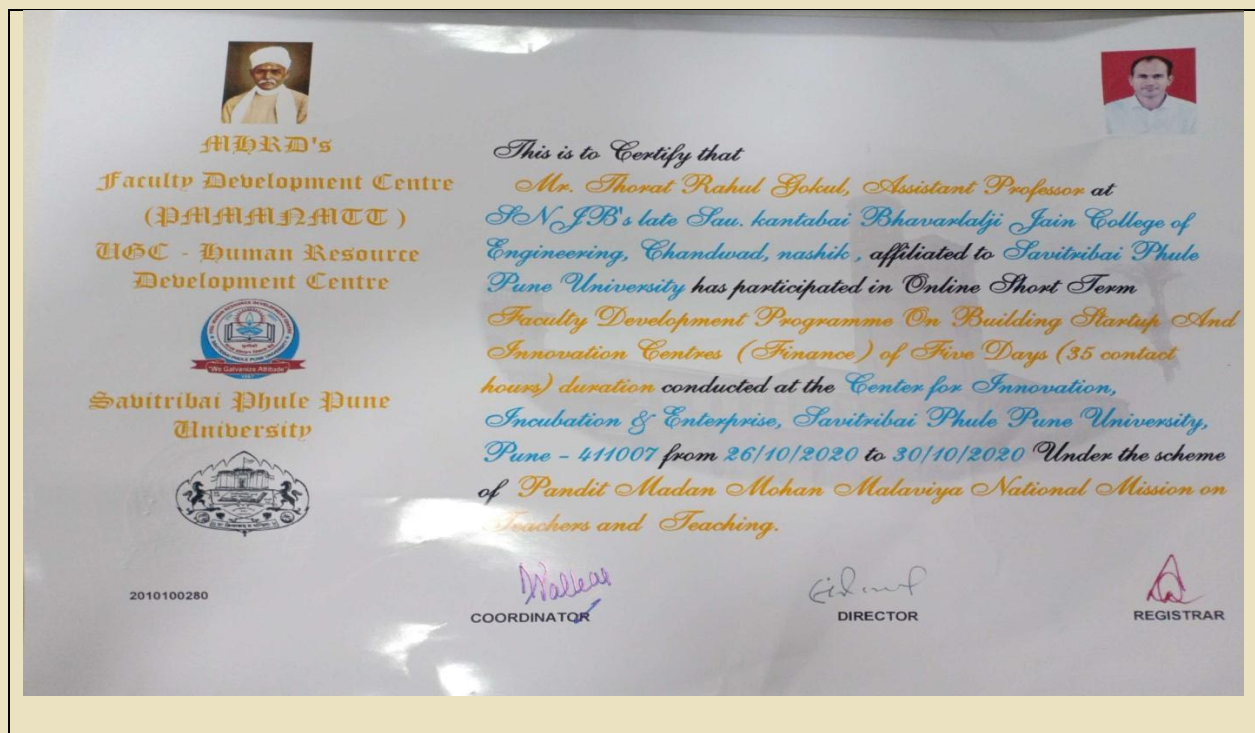 MHRD's
Faculty Development Centre
(PMMMNMTT )
UGC - Human Resource
Development Centre
"We Galvanize Attitude"
Savitribai Phule Pune
University
2010100280
This is to Certify that
Mr. Thorat Rahul Gokul, Assistant Professor at
SNJB's late Sau. kantabai Bhavarlalji Jain College of
Engineering, Chandwad, nashik , affiliated to Savitribai Phule
Pune University has participated in Online Short Term
Faculty Development Programme On Building Startup And
Innovation Centres (Finance) of Five Days (35 contact
hours) duration conducted at the Center for Innovation,
Incubation & Enterprise, Savitribai Phule Pune University,
Pune - 411007 from 26/10/2020 to 30/10/2020 Under the scheme
of Pandit Madan Mohan Malaviya National Mission on
Teachers and Teaching.
COORDINATOR
DIRECTOR
REGISTRAR